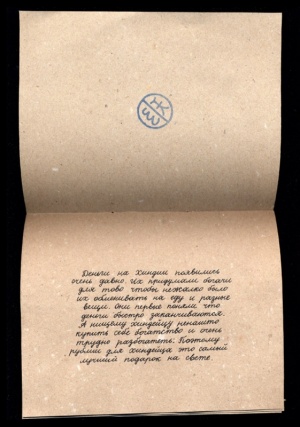 ЖЗЗ
Деньги на Хиндии появились
очень давно. Их придумали богачи
для тово чтобы нежалко было
их обменивать на еду и разные
вещи. Они первые поняли что
деньги быстро заканчиваются.
А нищему хиндейцу ненашто
купить себе богатство и очень
трудно разбогатеть. Поэтому
рубли для хиндейца это самый
лучший подарок на свете.